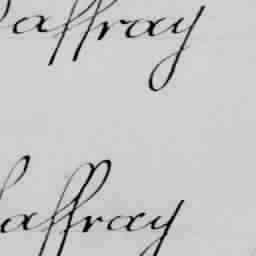 affray
affray